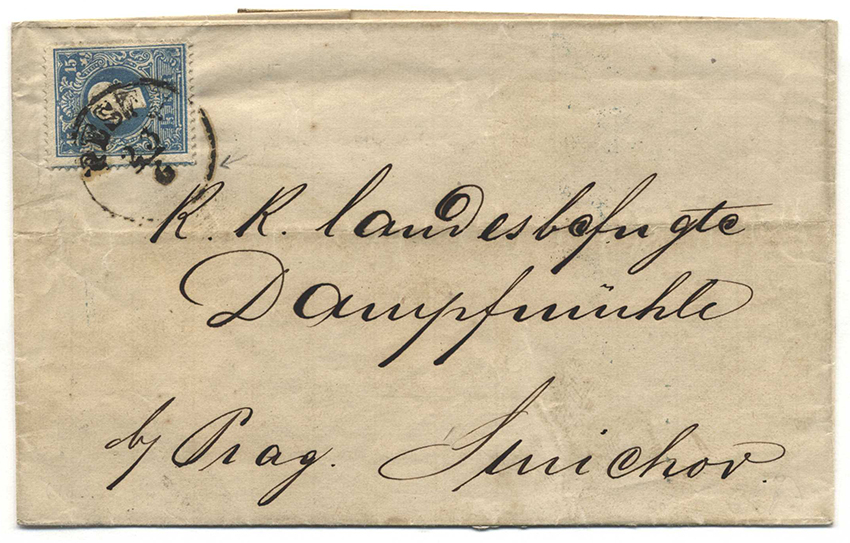 15
PEST
K. K. landesbefugte
Dampfmühle
by Prag. Smichov.